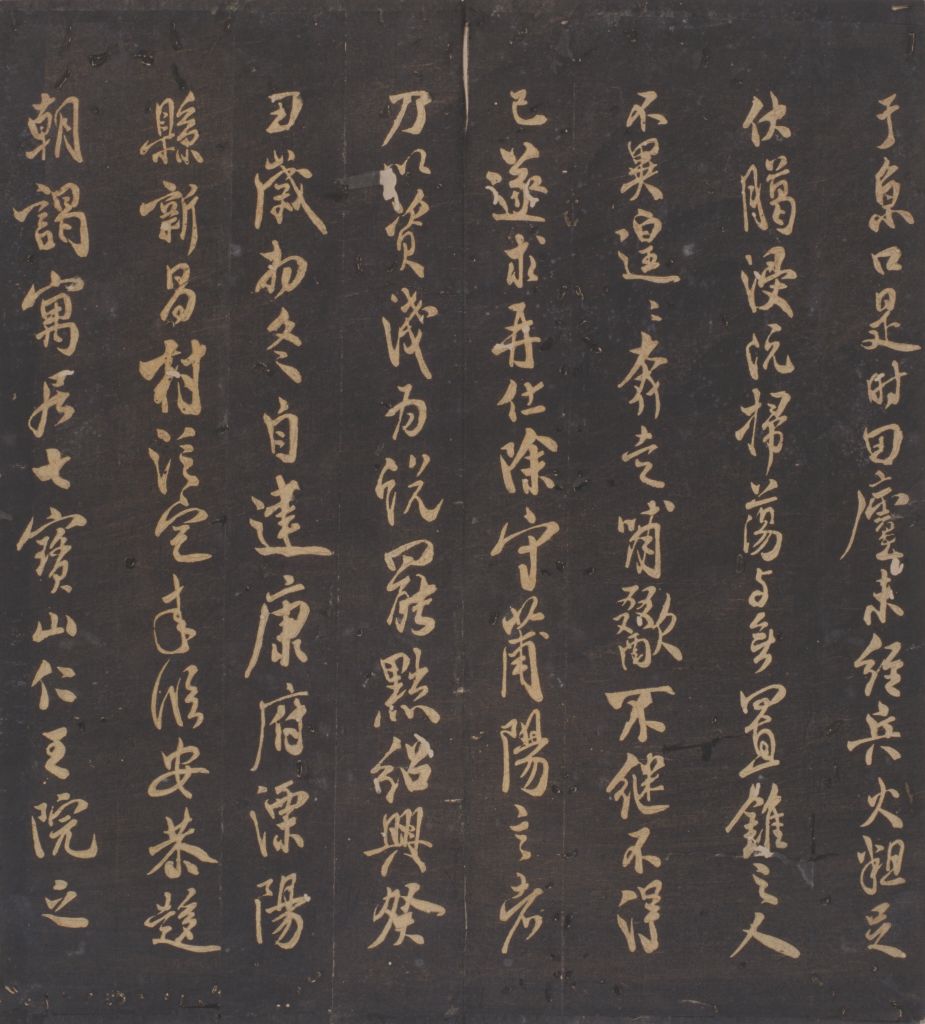 于息口是时田廬未經兵火粗足
伏臘浸掃蕩与無置錐之人
不異遑〻奔走哺歠不继不得
已遂求再仕除守莆陽之考
乃以资淺为说罷黜紹興癸
丑歲初冬自建康府溧陽
縣新昌村泛宅来臨安恭趍
朝謁寓居七寶山仁王院之